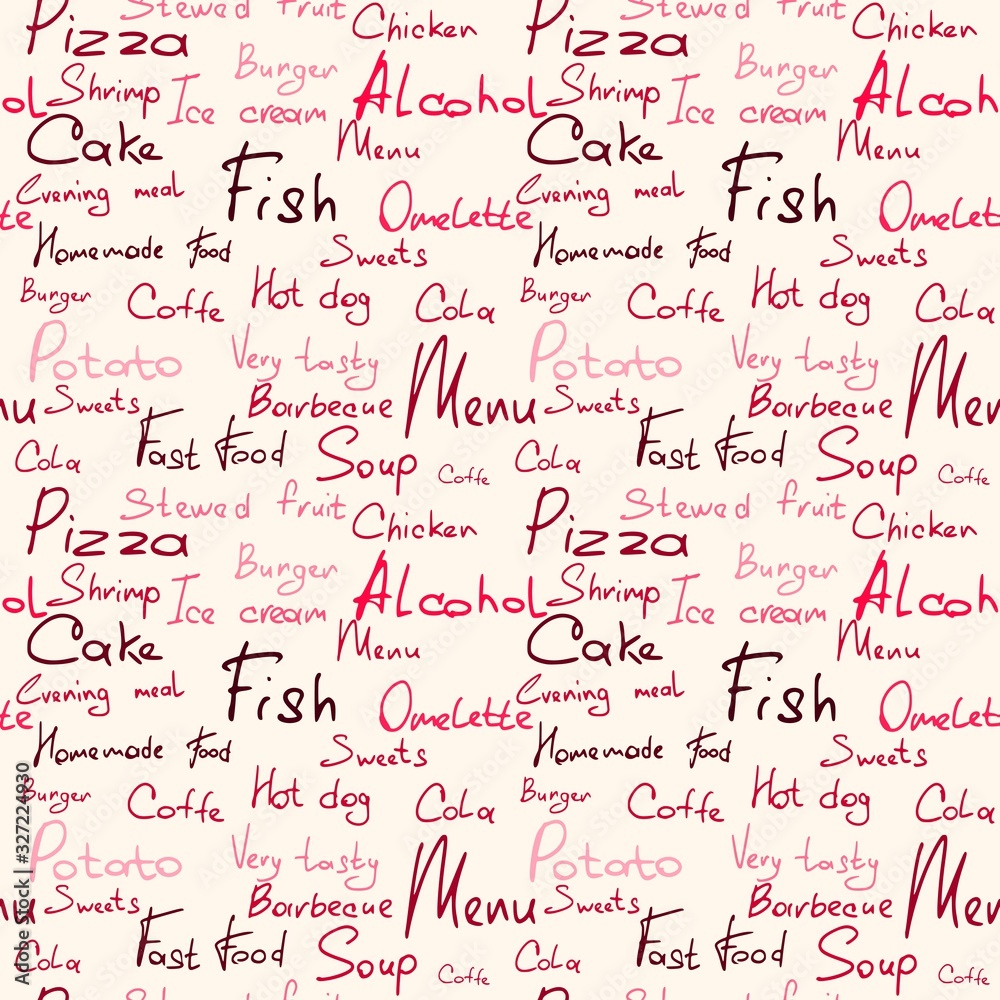 Stewed fruit Stewed fruit
Pizza Chicken Pizza Chicken
Burger Burger
oL Shrimp Ice cream ALcohoL Shrimp Ice cream ALcoh
Cake Menu Cake Menu
Evening meal Fish Evening meal Fish
te Omelette Omelet
Homemade Food Sweets Homemade Food Sweets
Burger Coffe Hot dog Cola Burger Coffe Hot dog Cola
Potato Very tasty Potato Very tasty
nu Sweets Barbecue Menu Sweets Barbecue Men
Cola Fast Food Soup Coffe Cola Fast Food Soup Coffe
Stewed fruit Stewed fruit
Pizza Chicken Pizza Chicken
Burger Burger
oL Shrimp Ice cream ALcohoL Shrimp Ice cream ALcoh
Cake Menu Cake Menu
Evening meal Fish Evening meal Fish
te Omelette Omelet
Homemade Food Sweets Homemade Food Sweets
Burger Coffe Hot dog Cola Burger Coffe Hot dog Cola
Potato Very tasty Potato Very tasty
nu Sweets Barbecue Menu Sweets Barbecue Men
Cola Fast Food Soup Coffe Cola Fast Food Soup Coffe
Adobe Stock | #327224930